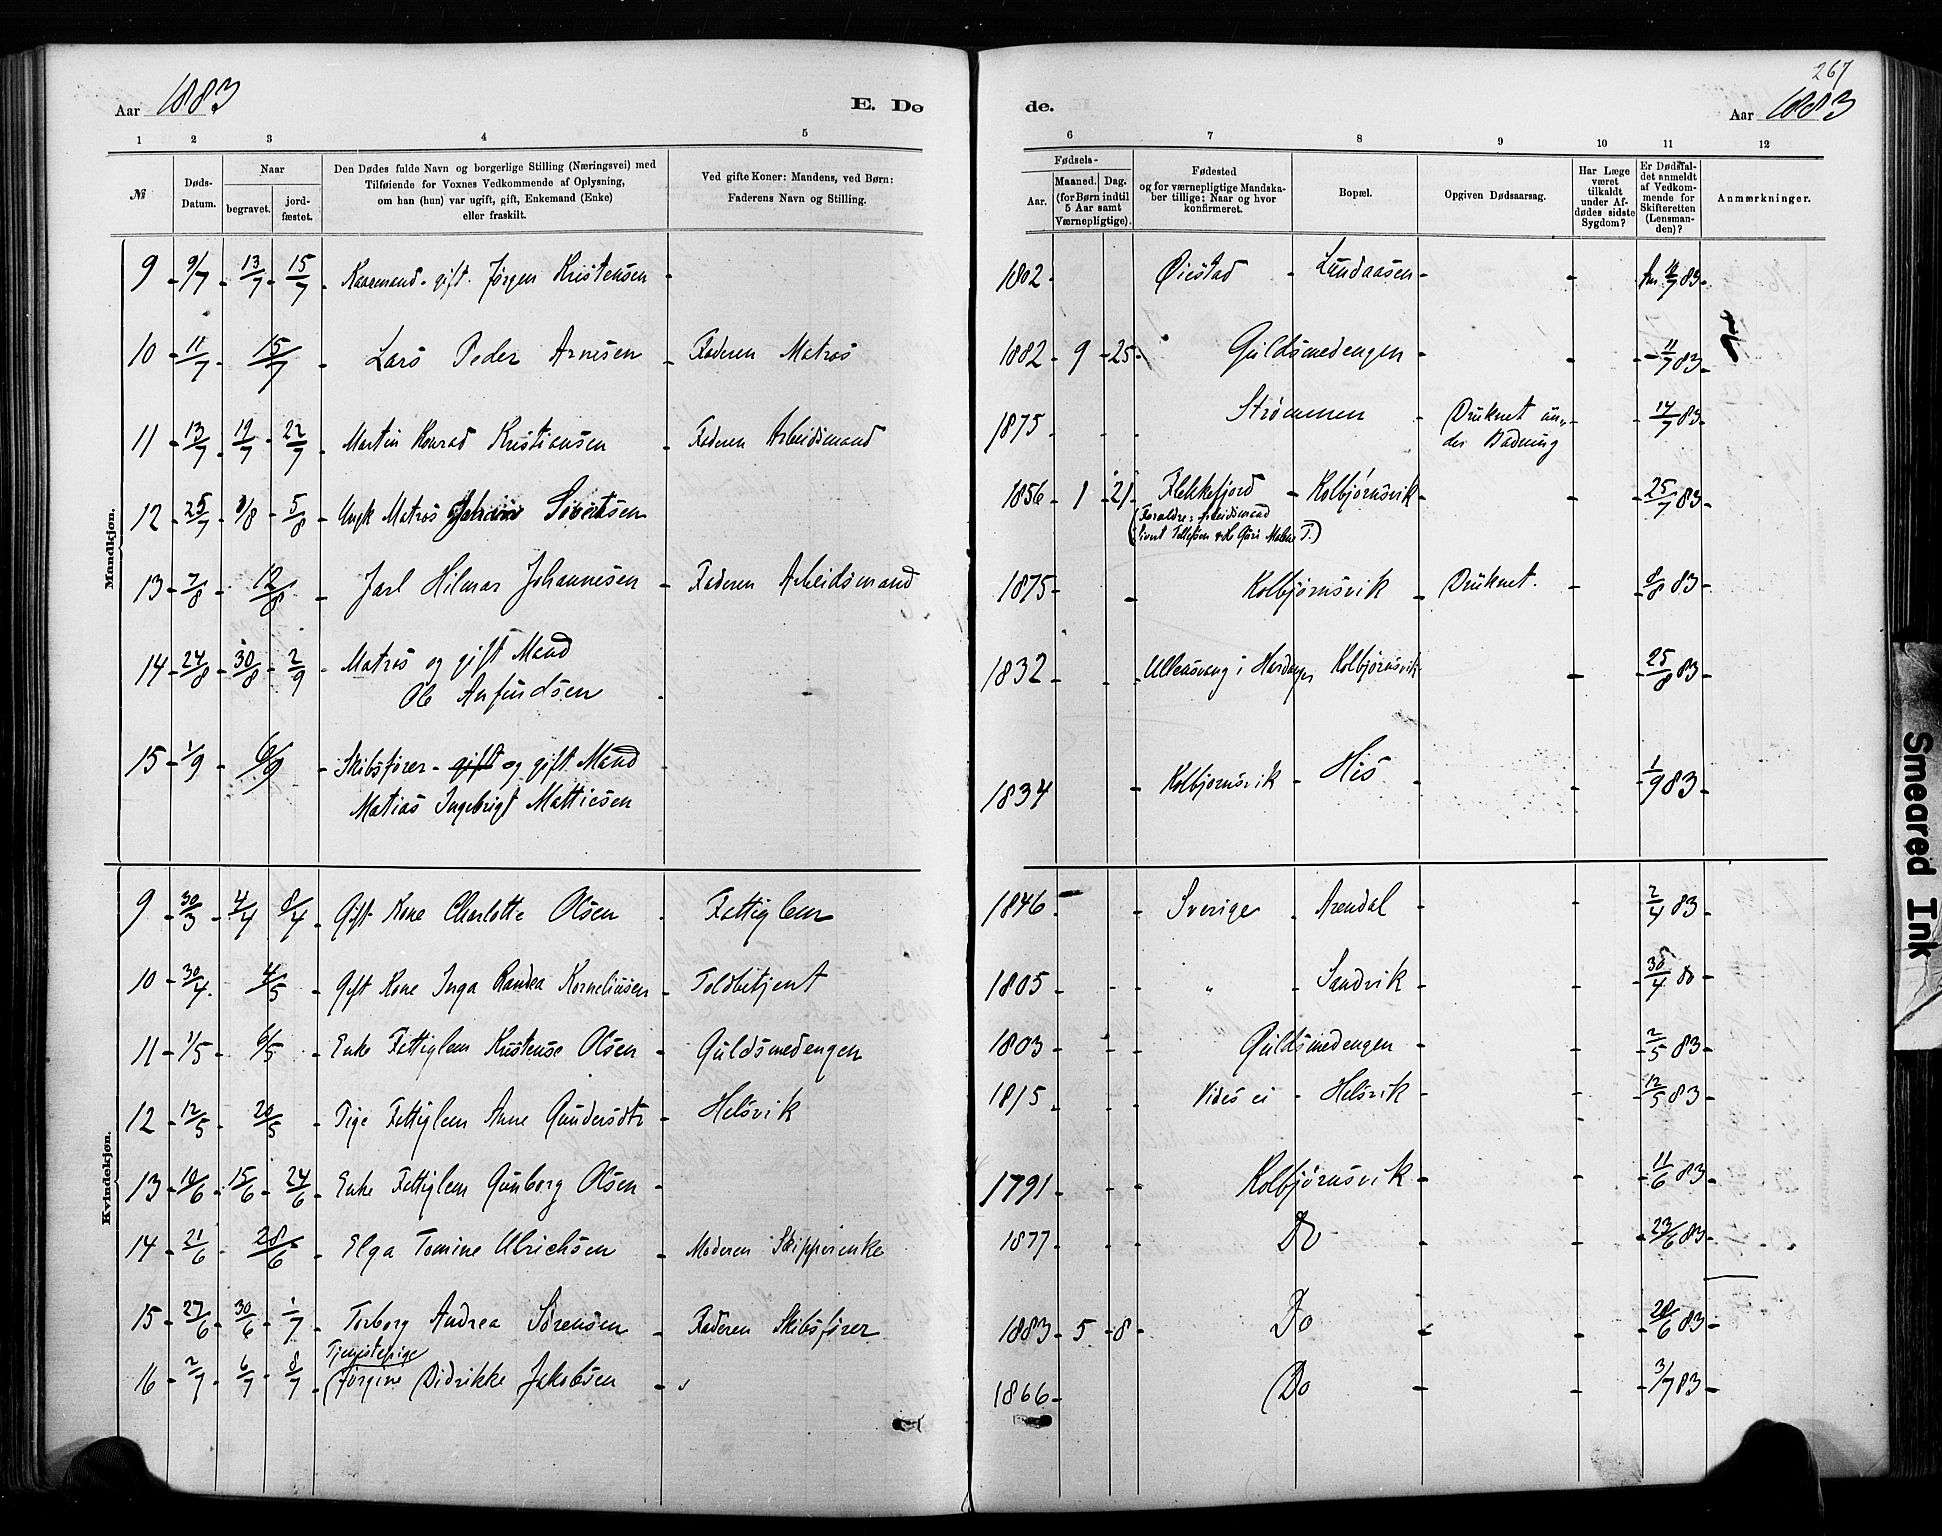 267
Aar 1883 E. Dø de. Aar 1883
1 2 3 4 5 6 7 8 9 10 11 12
№ Døds-Datum. Naar begravet. jord-fæstet. Den Dødes fulde Navn og borgerlige Stilling (Næringsvei) med Tilføiende for Voxnes Vedkommende af Oplysning, om han (hun) var ugift, gift, Enkemand (Enke) eller fraskilt. Ved gifte Koner: Mandens, ved Børn: Faderens Navn og Stilling. Fødsels- Aar. Maaned. Dag. (for Børn indtil 5 Aar samt Værnepligtige). Fødested og for værnepligtige Mandska-ber tillige: Naar og hvor konfirmeret. Bopæl. Opgiven Dødsaarsag. Har Læge været tilkaldt under Af-dødes sidste Sygdom? Er Dødsfal-det anmeldt af Vedkom-mende for Skifteretten (Lensman-den)? Anmærkninger.
Mandkjøn.
9 9/7 13/7 15/7 Kaaremand gift Jørgen Kristensen 1802 Øiestad Lundaasen 83
10 11/7 15/7 Lars Peder Arnesen Faderen Matros 1882 9 25 Guldsmedengen 11/7 83
11 13/7 19/7 22/7 Martin Konrad Kristiansen Faderen Arbeidsmand 1875 Strømmen Druknet un- 14/7 83
der Badning
12 25/7 1/8 5/8 Ungk Matros Sivertsen 1856 1 21 Flekkefjord Kolbjørnsvik 25/7 83
(Forældre: Arbeidsmand
Sivert Tollefsen
13 7/8 12/8 Jarl Hilmar Johannesen Faderen Arbeidsmand 1875 Kolbjørnsvik Druknet. 8/8 83
14 24/8 30/8 2/9 Matros og gift Mand 1832 Ullensvang i Hardanger Kolbjørnsvik 25/8 83
Ole Anfindsen
15 1/9 6/9 Skibsfører gift og gift Mand 1834 Kolbjørnsvik His 1/9 83
Matias Ingebrigt Mathiesen
Kvindekjøn.
9 30/3 4/4 8/4 Gift Kone Charlotte Olsen Fattiglem 1846 Sverige Arendal 2/4 83
10 30/4 4/5 Gift Kone Inga Randea Korneliusen Toldbetjent 1805 " Sandvik 30/4 80
11 1/5 6/5 Enke Fattiglem Kristense Olsen Guldsmedengen 1803 Guldsmedengen 2/5 83
12 12/5 20/5 Pige Fattiglem Anne Gundersdtr Helsvik 1815 Vides ei Helsvik 12/5 83
13 10/6 15/6 24/6 Enke Fattiglem Gunborg Olsen 1791 Kolbjørnsvik 11/6 83
14 21/6 28/6 Elga Tomine Ulrichsen Moderen Skipperenke 1877 Do 23/6 83
15 27/6 30/6 1/7 Torborg Andrea Sørensen Faderen Skibsfører 1883 5 8 Do 28/6 83
Tjenestepige
16 2/7 6/7 8/7 (Jørgine Didrikke Jakobsen " 1866 Do 3/7 83
Smeared Ink